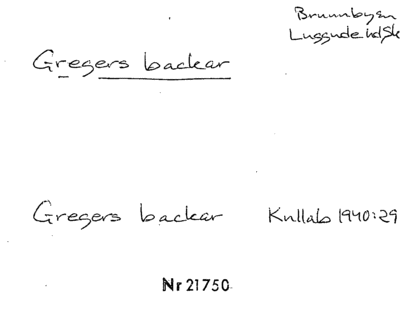 Brunnbysn
Luggude hd Sk
Gregers backar
Gregers backar Kullab 1940:29
Nr 21750